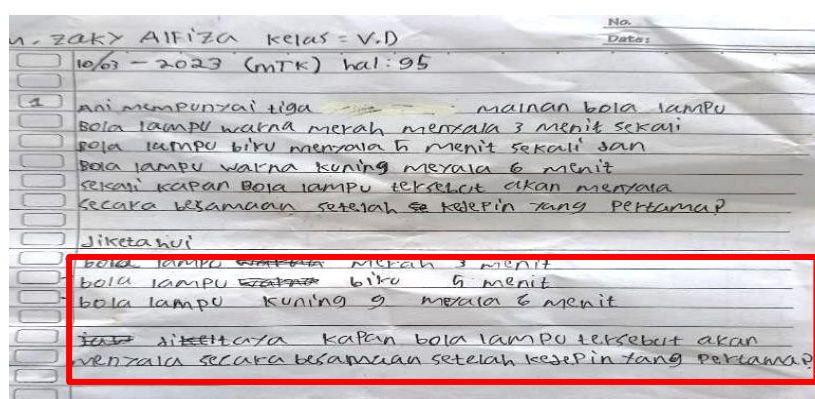 No.
m. zaky Alfiza kelas = V.D
Date:
10/03 - 2023 (mTK) hal: 95
1 Ani mempunyai tiga mainan bola lampu
Bola lampu warna merah menyala 3 menit sekali
Bola lampu biru menyala 5 menit sekali dan
Bola lampu warna kuning meyala 6 menit
sekali kapan Bola lampu tersebut akan menyala
secara besamaan setelah kedepin yang pertama?
diketahui
bola lampu merah 3 menit
bola lampu biru 5 menit
bola lampu kuning g meyala 6 menit
ditaya kapan bola lampu tersebut akan
menyala secara besamaan setelah kedepin yang pertama?